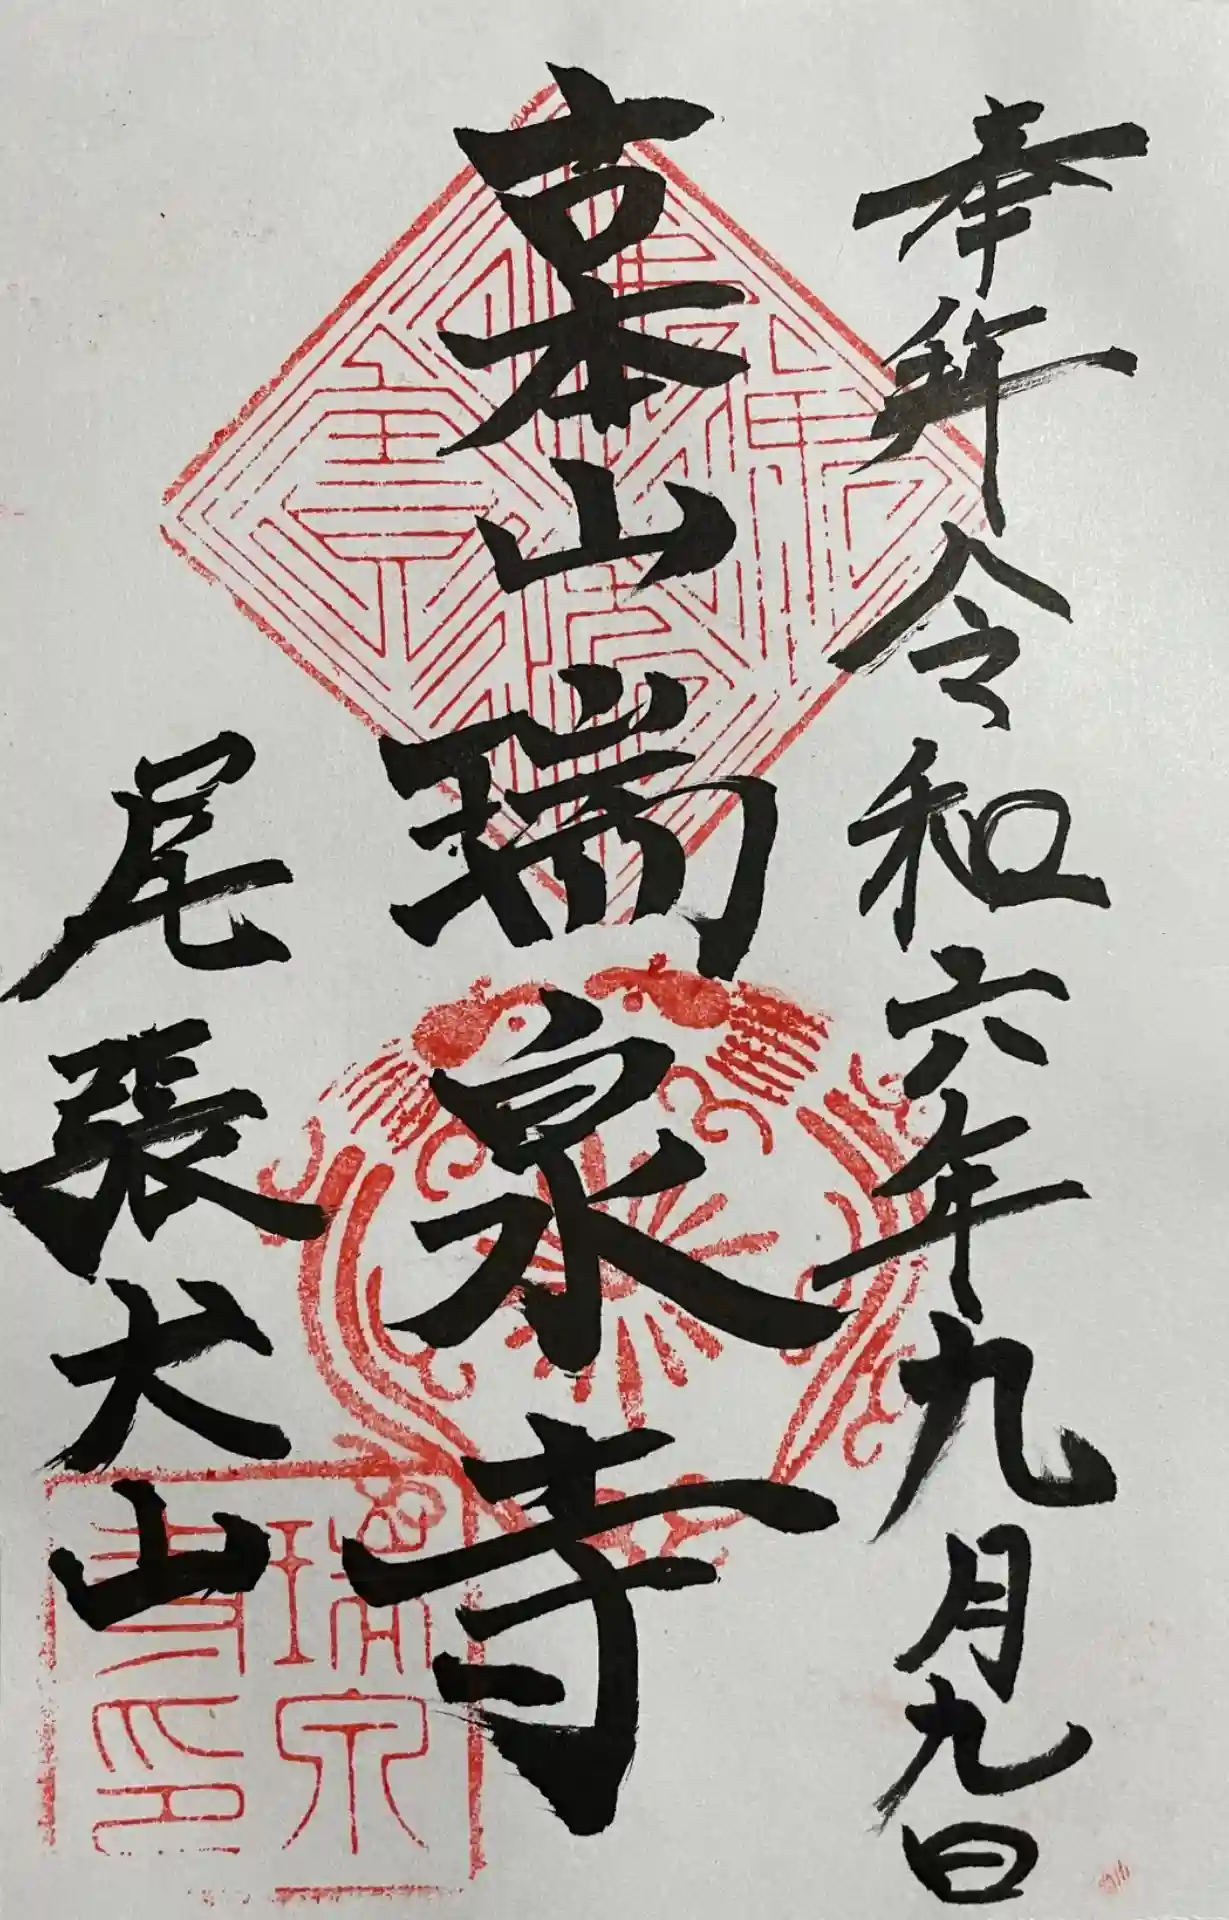 奉拝 令和六年九月九日
古本山 瑞泉寺
尾張犬山
瑞泉
寺印